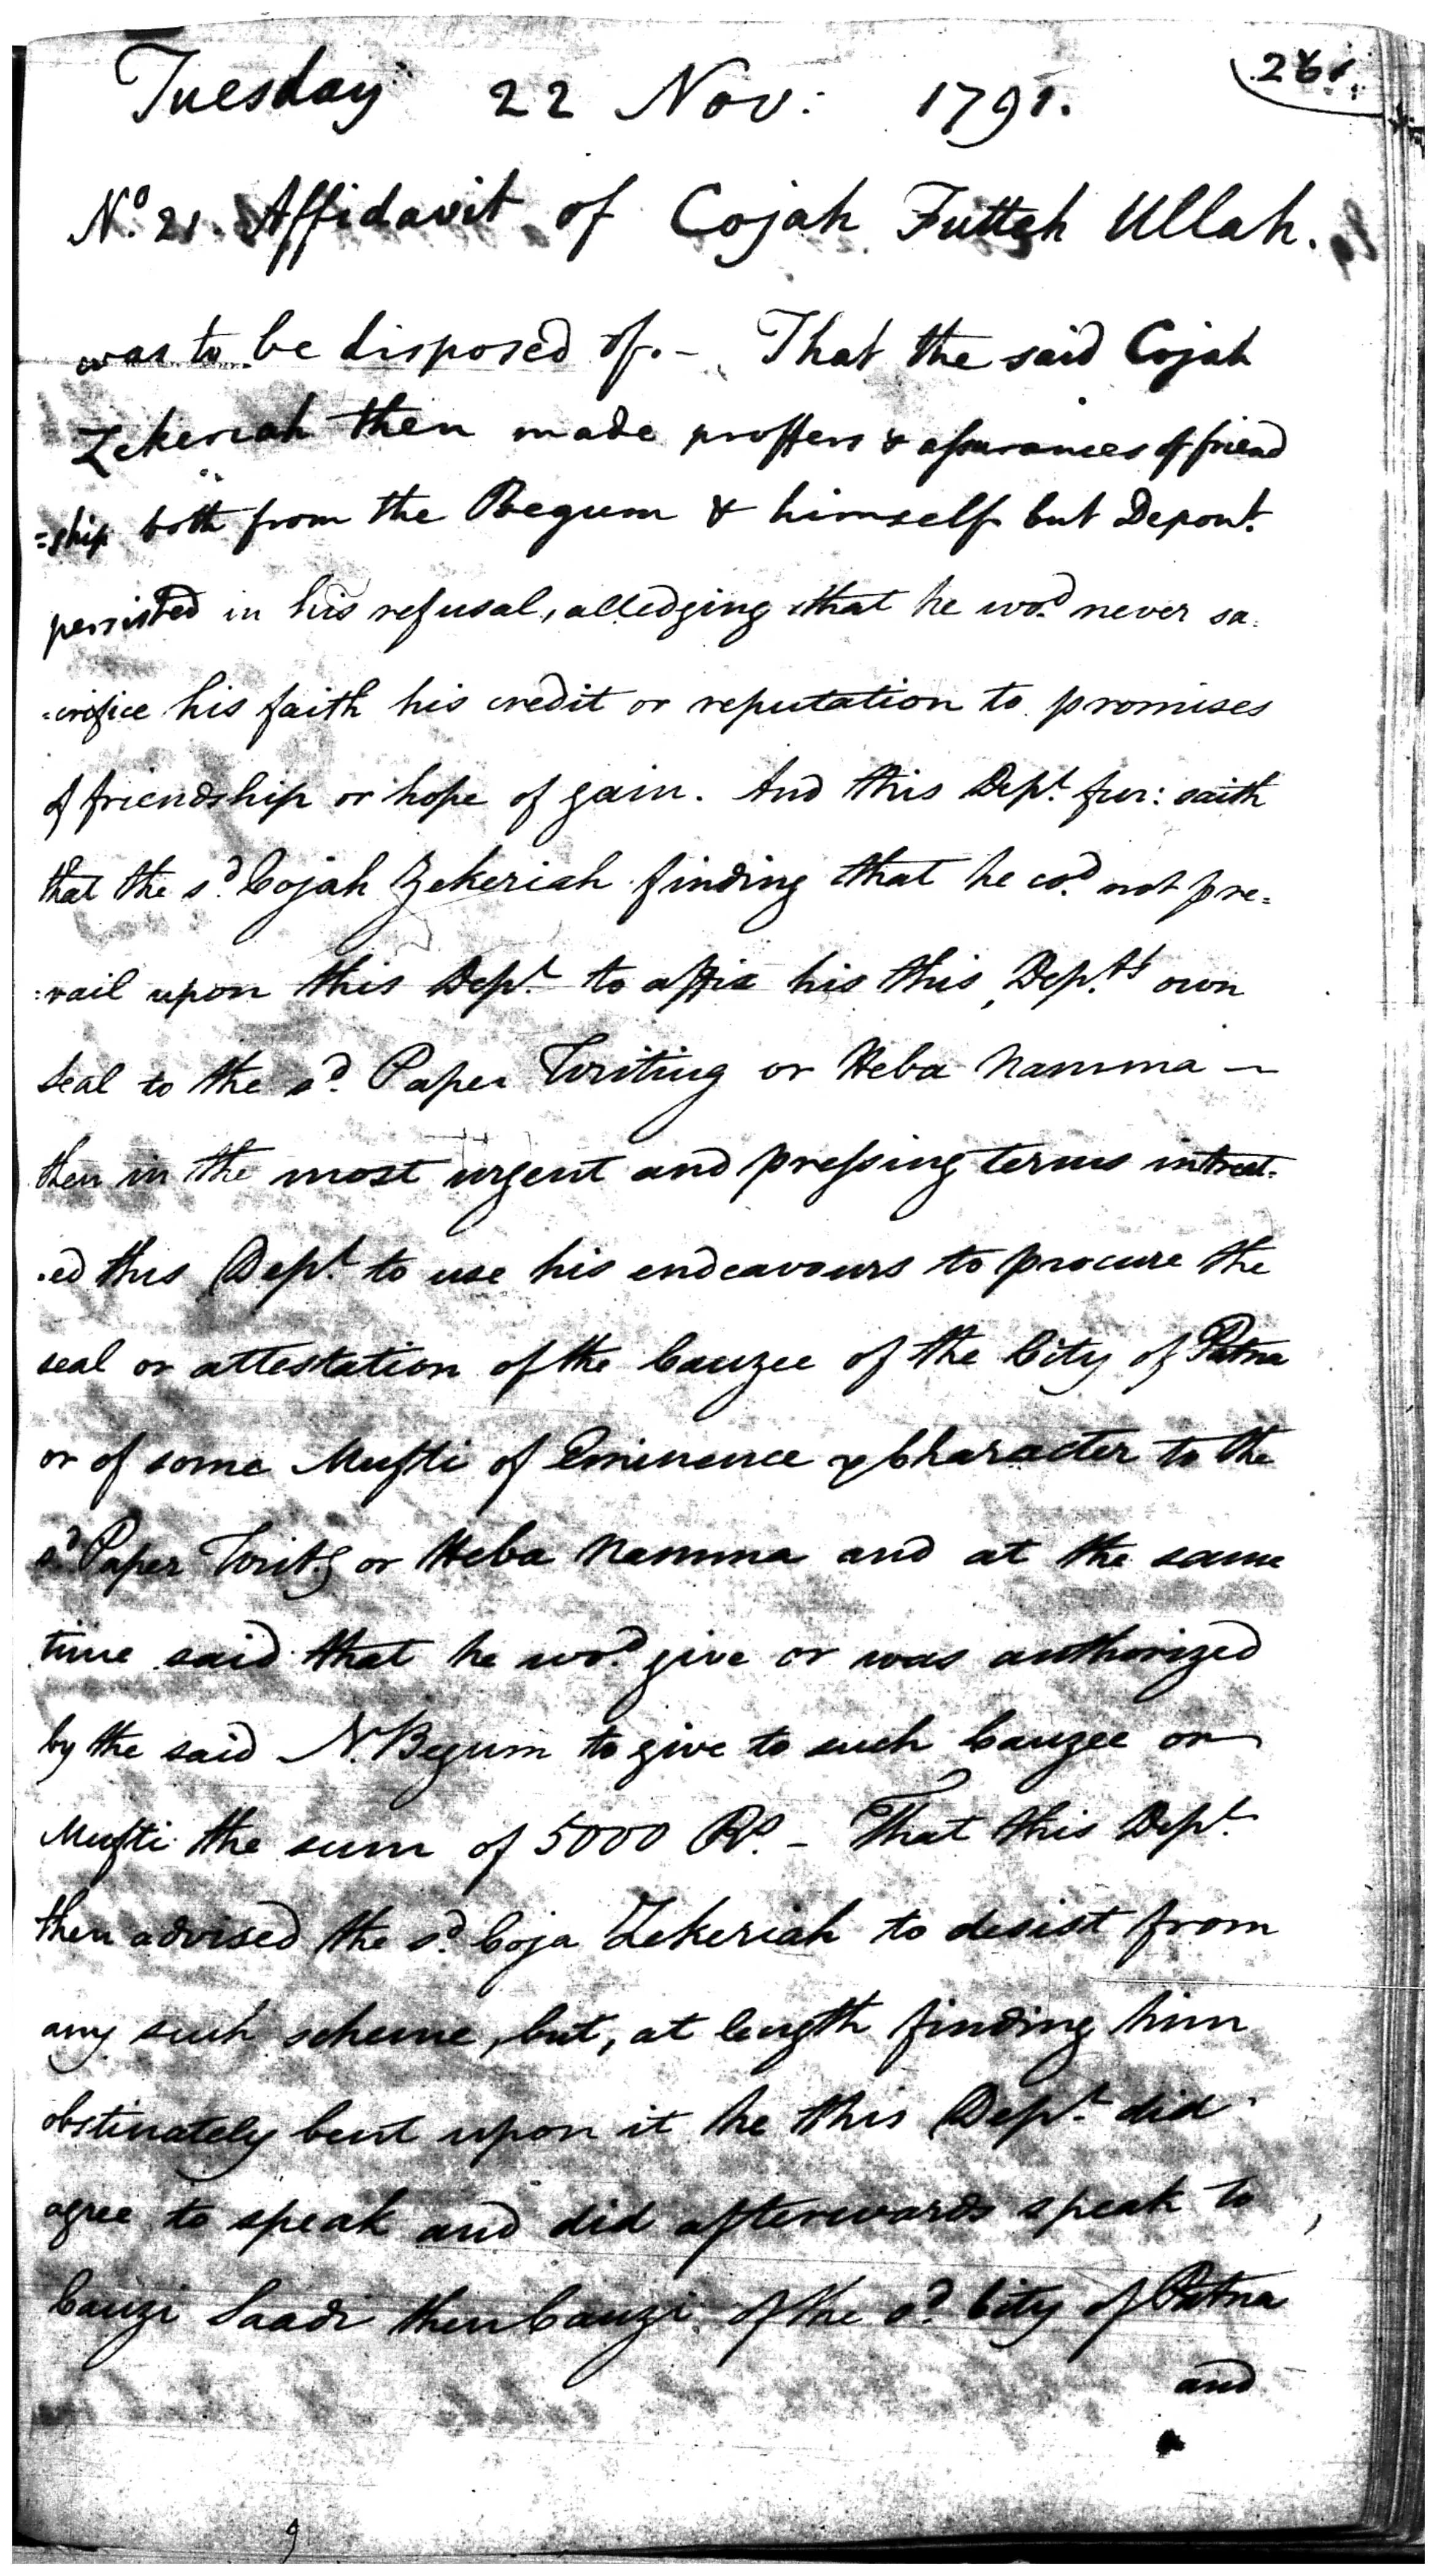 261
Tuesday 22 Nov: 1791.
No. 21. Affidavit of Cojah Futteh Ullah.
was to be disposed of. - That the said Cojah
Zekeriah then made proffers & assurances of friend
=ship both from the Begum & himself but Depont.
persisted in his refusal, alledging that he wod. never sa=
=crifice his faith his credit or reputation to promises
of friendship or hope of gain. And this Dept. fur: saith
that the sd. Cojah Zekeriah finding that he cod. not pre=
=vail upon this Dept. to affix his this, Dept.s own
seal to the sd. Paper Writing or Heba Namma -
then in the most urgent and pressing terms intreat=
=ed this Dept. to use his endeavours to procure the
seal or attestation of the Cauzee of the City of Patna
or of some Mufti of Eminence & Character to the
sd. Paper Writ.g or Heba Namma and at the same
time said that he wod. give or was authorized
by the said N. Begum to give to such Cauzee or
Mufti the sum of 5000 Rs. - That this Dept.
then advised the sd. Coja Zekeriah to desist from
any such scheme, but, at length finding him
obstinately bent upon it he this Dept. did
agree to speak and did afterwards speak to
Cauzi Saadi then Cauzi of the sd. City of Patna
and